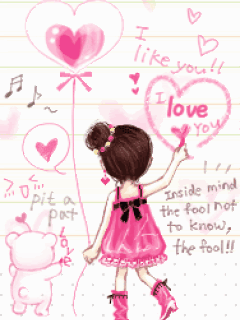 I
like you!!
I love
you
pit a
pat
Love
Inside mind
the fool not
to know,
the fool!!